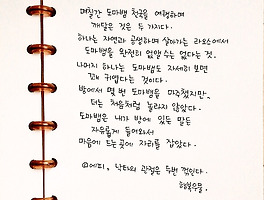 며칠간 도마뱀 천국을 여행하며
깨달은 것은 두 가지다.
하나는 자연과 공생하며 살아가는 라오스에서
도마뱀을 완전히 없앨 수는 없다는 것.
나머지 하나는 도마뱀도 자세히 보면
꽤 귀엽다는 것이다.
방에서 몇 번 도마뱀을 마주쳤지만,
더는 처음처럼 놀라지 않았다.
도마뱀은 내가 방에 있든 말든
자유롭게 들어와서
마음에 드는 곳에 자리를 잡았다.
©에피, 낙타의 관절은 두 번 꺾인다.
행복우물.